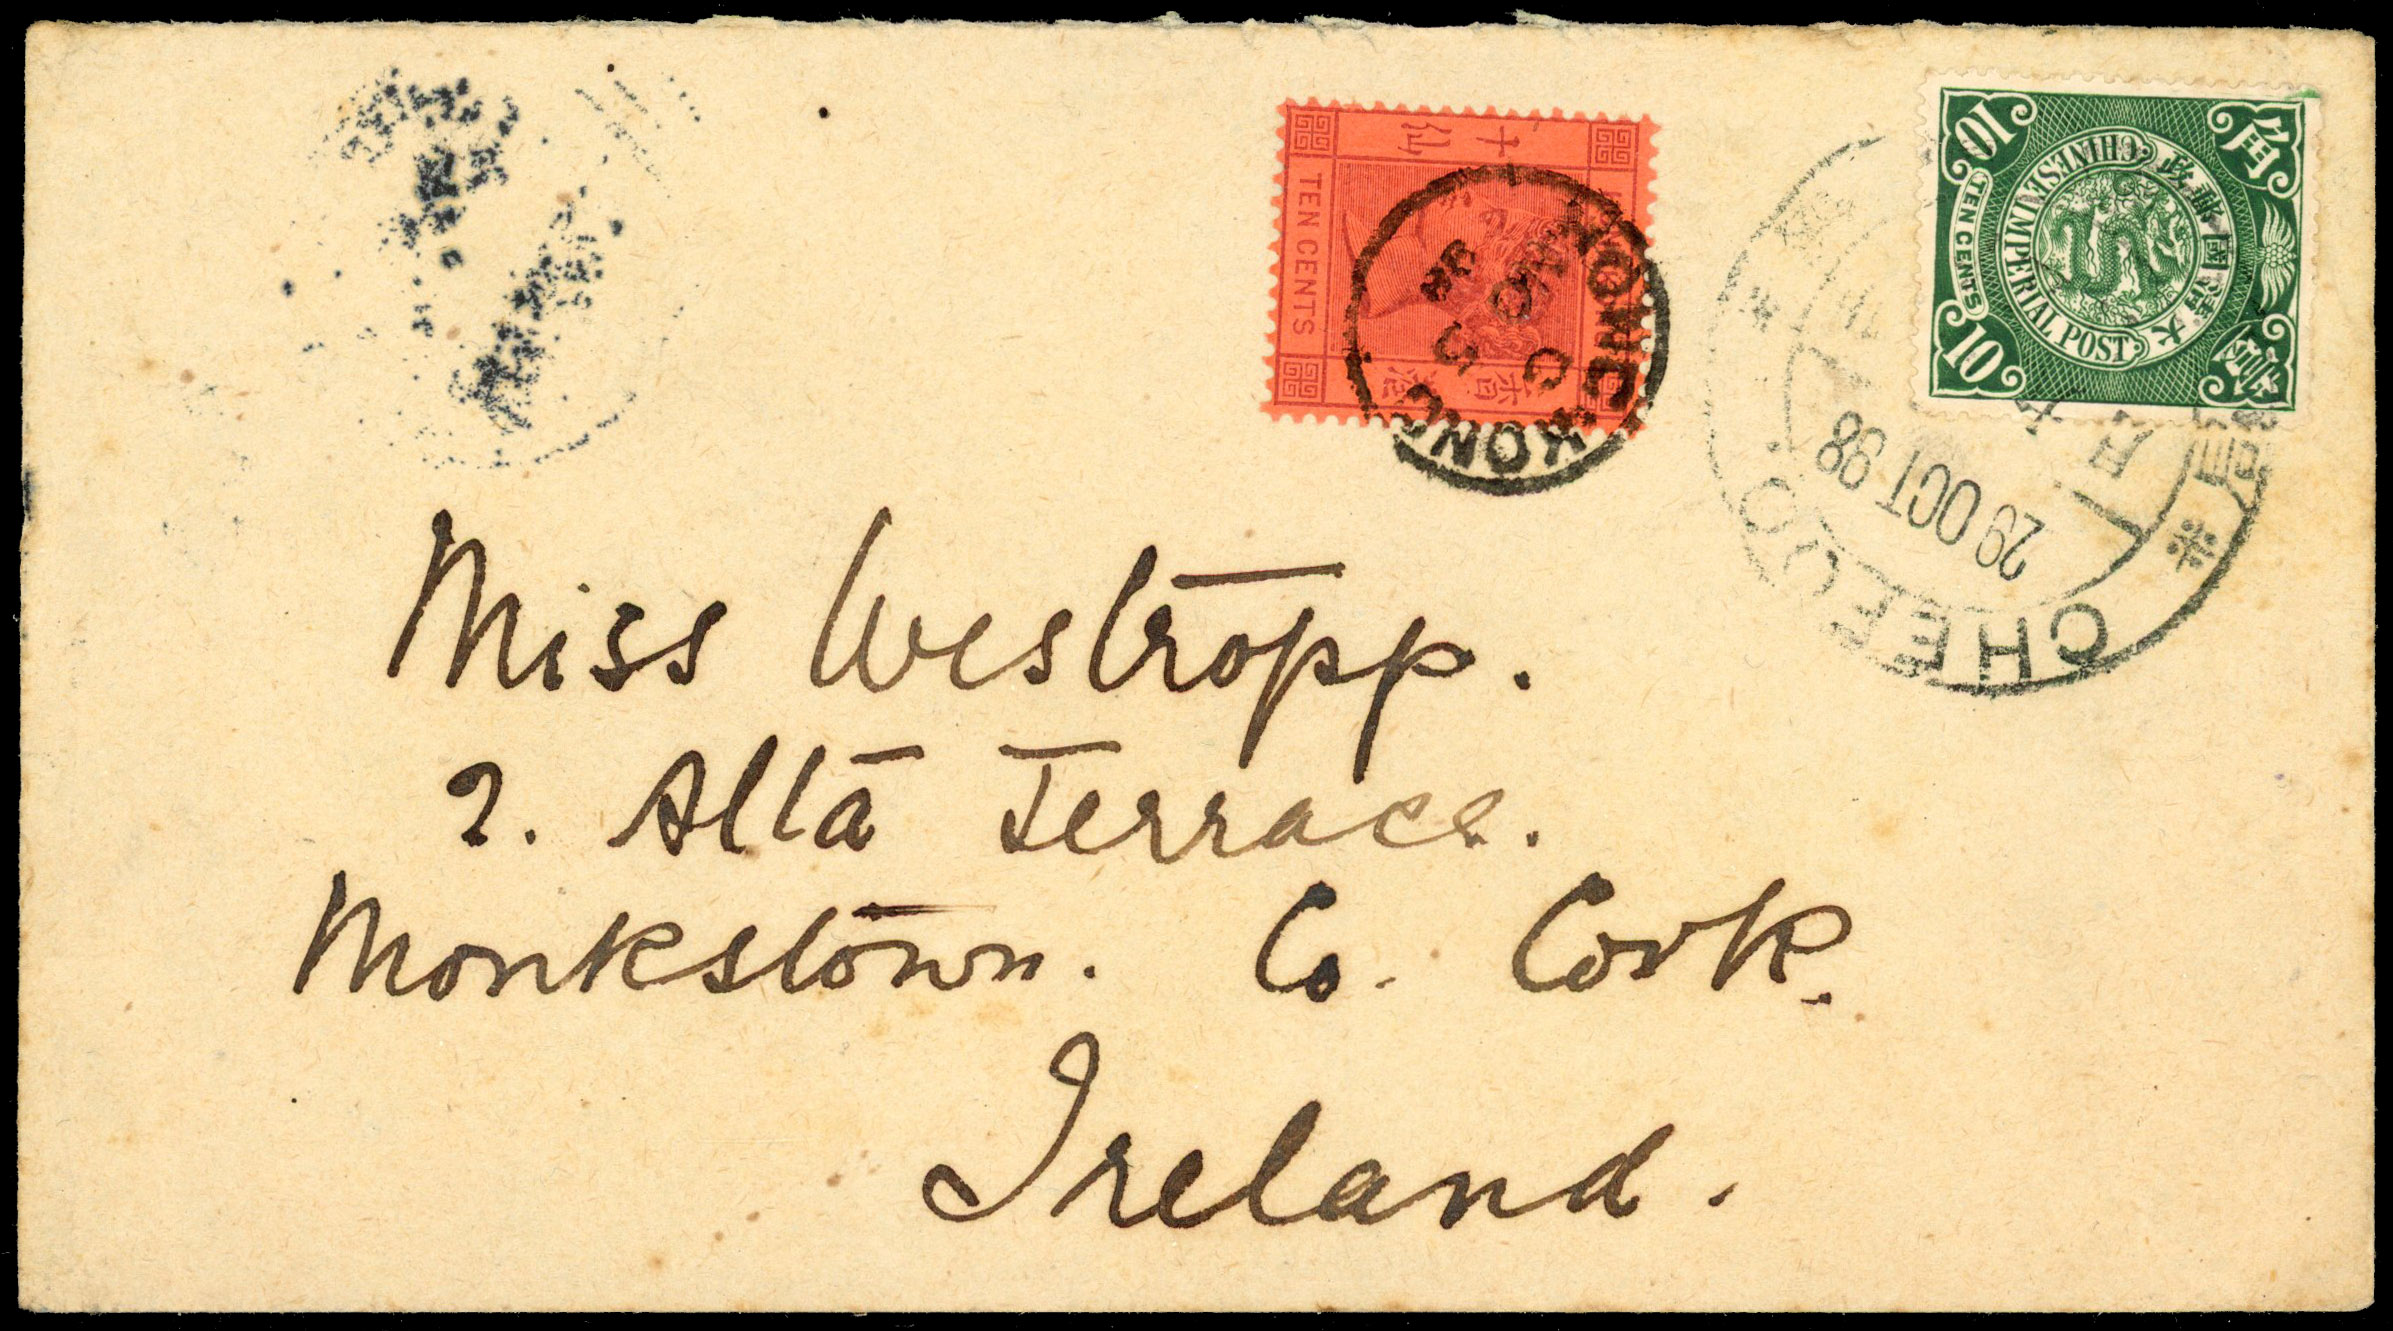 Miss Westropp.
2. Alta Terrace.
Monkstown. Co. Cork.
Ireland.
十仙
TEN CENTS
香港
HONG KONG
C
NO 5
98
10
TEN CENTS
10
CHINESE IMPERIAL POST
大清國郵政
角
壹
CHEFOO.
29 OCT 98
月